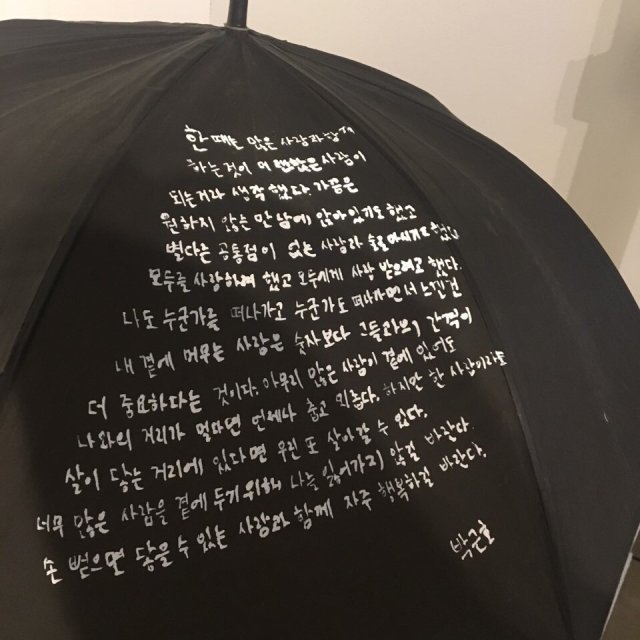 한때는 많은 사람과 함께
하는것이 더 괜찮은 사람이
되는거라 생각했다 가끔은
원하지 않는 만남에 앉아 있기도 했고
별다른 공통점이 없는 사람과 술을 마시기도 했다.
모두를 사랑하려 했고 모두에게 사랑 받으려고 했다.
나도 누군가를 떠나가고 누군가도 떠나가면서 느낀건
내 곁에 머무는 사람은 숫자보다 그들과의 간격이
더 중요하다는 것이다. 아무리 많은 사람이 곁에 있어도
나와의 거리가 멀다면 언제나 춥고 외롭다. 하지만 한 사람이라도
살이 닿는 거리에 있다면 우린 또 살아갈 수 있다.
너무 많은 사람을 곁에 두기 위해 나를 잃어가지 않길 바란다.
손 뻗으면 닿을 수 있는 사람과 함께 자주 행복하길 바란다.
박근호